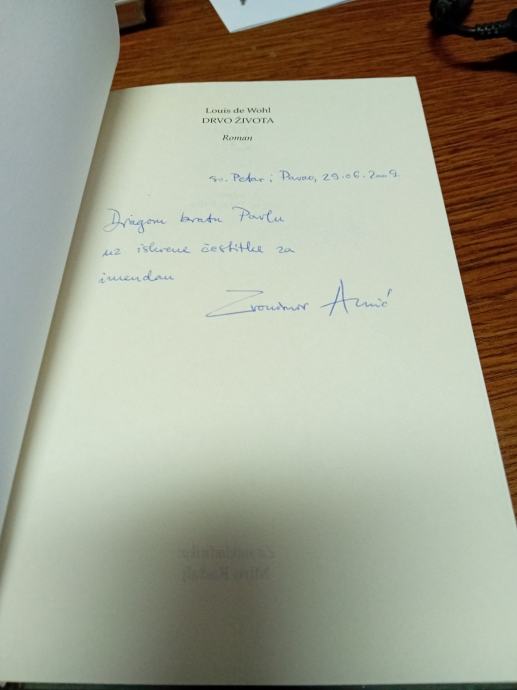 Louis de Wohl
DRVO ŽIVOTA
Roman
sv. Petar i Pavao, 29.06.2009.
Dragom bratu Pavlu
uz iskrene čestitke za
imendan
Zvonimir
Za nakladnika: